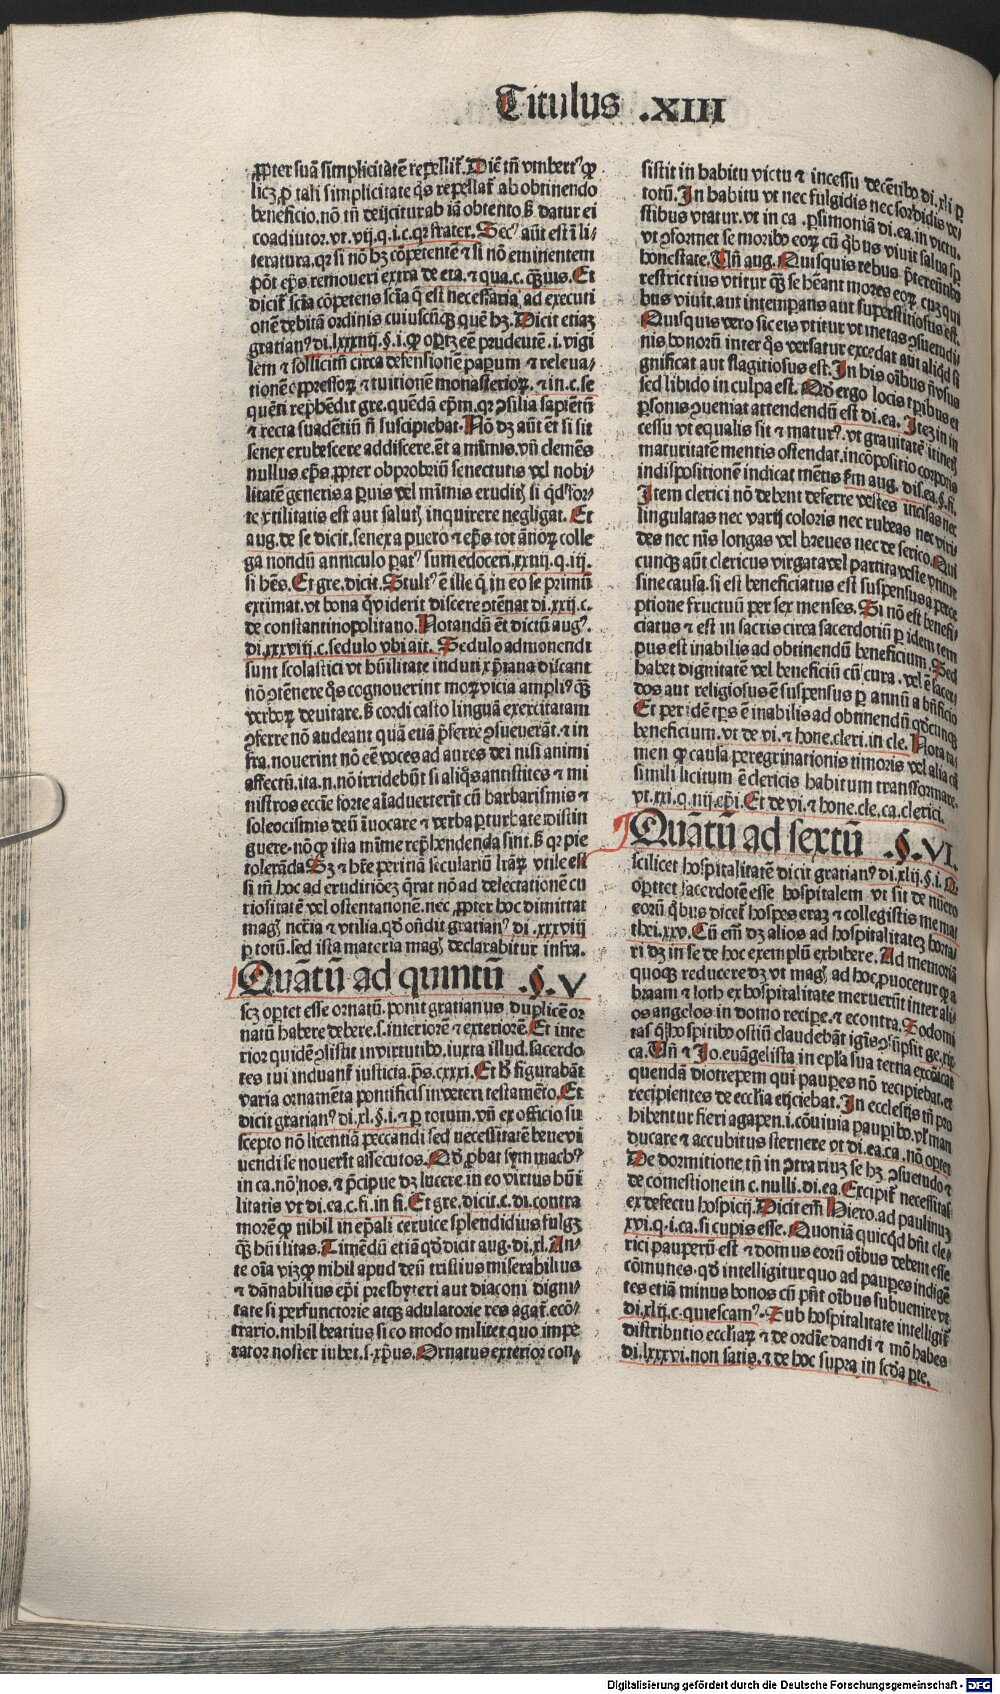 Titulus .XIII
ꝓpter suã simplicitatẽ repellit̃. Diẽ tñ vmbertꝰ ꝙ
licz ꝓ tali simplicitate q̃s repellat̃ ab obtinendo
beneficio. nõ tñ deijcitur ab iã obtento. sꝫ datur ei
coadiutor. vt. vij. q. i. c. qꝛ frater. Secꝰ aũt est ĩ li-
teratura. qꝛ si nõ hꝫ cõpetentẽ ⁊ si nõ eminentem
põt ep̃s remoueri extra de eta. ⁊ qua. c. qꝫuis. Et
dicit̃ scĩa cõpetens scĩa q̃ est necessaria ad executi
onẽ debitã ordinis cuiuscũqꝫ quẽ hꝫ. Dicit etiaꝫ
gratianꝰ di. lxxxiiij. §. i. ꝙ oportꝫ eẽ prudeutẽ. i. vigi
lem ⁊ sollicitũ circa defensionẽ pauꝑum ⁊ releua-
tionẽ oppressoꝝ ⁊ tuitionẽ monasterioꝝ. ⁊ in. c. se
quẽti rep̃hẽdit gre. quẽdã ep̃m. qꝛ ꝯsilia sapientũ
⁊ recta suadẽtiũ nõ suscipiebat. Nõ dꝫ aũt ẽt si sit
senex erubescere addiscere. ẽt a minimis. vñ clemẽs
nullus ep̃s ꝓpter obprobriũ senectutis vel nobi-
litatẽ generis a paruis vel minimis eruditis si qd̃ for-
te vtilitatis est aut salutis inquirere negligat. Et
aug. de se dicit. senex a puero ⁊ ep̃s tot annoꝝ colle
ga nondũ anniculo parꝰ sum edoceri. xxiiij. q. iij.
si hẽs. Et gre. dicit. Stultꝰ ẽ ille q̃ in eo se primũ
extimat. vt bona q̃ viderit discere ꝯtẽnat di. xxij. c.
de constantinopolitano. Notandũ ẽt dictũ augꝰ.
di. xxxviij. c. sedulo vbi ait. Sedulo admonendi
sunt scolastici vt hũilitate induti xp̃iana discant
nõ ꝯtẽnere q̃s cognouerint moꝝ vicia ampliꝰ qꝫ
verboꝝ deuitare. sꝫ cordi casto linguã exercitatam
ꝯferre nõ audeant quã etiã p̃ferre ꝯsueuerãt. ⁊ in
fra. nouerint nõ eẽ voces ad aures dei nisi animi
affectũ. ita. n. nõ irridebũt si aliq̃s antistites ⁊ mi
nistros ecclie forte aĩaduerterit cũ barbarismis ⁊
soleocismis deũ ĩuocare ⁊ verba ꝑturbate distin
guere. nõ ꝙ ista mĩme rep̃hendenda sint. sꝫ qꝛ pie
tolerãda. Sꝫ ⁊ hr̃e peritiã seculariũ lr̃aꝝ vtile est
si tñ hoc ad eruditiõeꝫ q̃rat nõ ad delectationẽ cu
riositatẽ vel ostentationẽ. nec ꝓpter hoc dimittat
magꝭ nccĩa ⁊ vtilia. qd̃ oñdit gratianꝰ di. xxxviij
ꝑ totũ. sed ista materia magꝭ declarabitur infra.
Quãtũ ad quintũ .§. V
scꝫ oportet esse ornatũ. ponit gratianus duplicẽ or
natũ habere debere. s. interiorẽ ⁊ exteriorẽ. Et inte
rior quidẽ ꝯsistit in virtutibꝰ. iuxta illud. sacerdo
tes tui induant̃ iusticia. p̃s. cxxxi. Et hꝰ figurabãt
varia ornamẽta pontificis in veteri testamẽto. Et
dicit gratianꝰ di. xl. §. i. ⁊ ꝑ totum. vñ ex officio su
scepto nõ licentiã peccandi sed necessitatẽ beuevi
uendi se nouerĩt assecutos. Qd̃ ꝓbat symmachꝰ
in ca. nõ nos. ⁊ p̃cipue dꝫ lucere in eo virtus hũi
litatis vt di. ea. c. fi. in fi. Et gre. dicit. c. di. contra
morẽ ꝙ nihil in ep̃ali ceruice splendidius fulgꝫ
qꝫ hũilitas. Timẽdũ etiã qd̃ dicit aug. di. xl. An-
te oĩa vizꝫ ꝙ nihil apud deũ tristius miserabilius
⁊ dãnabilius ep̃i presbyteri aut diaconi digni-
tate si perfunctorie atqꝫ adulatorie res agat̃. ecõ-
trario. nihil beatius si eo modo militet quo impe
rator noster iubet. s. xp̃us. Ornatus exterior con-
sistit in habitu victu ⁊ incessu decẽtibꝰ di. xli ꝑ
totũ. In habitu vt nec fulgidis nec sordidis ve-
stibus vtatur. vt in ca. ꝑsimoniã di. ea. in victu.
vt ꝯformet se moribꝰ eoꝝ cũ q̃bus viuit salua sp̃
honestate. Vñ aug. Quisquis rebus p̃tereũtibꝰ
restrictius vtitur qꝫ se hẽant mores eoꝝ cuꝫ qui
bus viuit. aut intemꝑans aut superstitiosus est.
Quisquis vero sic eis vtitur vt metas ꝯsuetudi
nis bonorũ inter q̃s versatur excedat aut aliqd̃ si
gnificat aut flagitiosus est. In his oĩbus nõ vsus
sed libido in culpa est. Qd̃ ergo locis tp̃ribus et
ꝑsonis ꝯueniat attendendũ est di. ea. Iteꝫ in in
cessu vt equalis sit ⁊ maturꝰ. vt grauitatẽ itineris
maturitatẽ mentis ostendat. incõpositio corporis
indispositionẽ indicat mẽtis ẜm aug. dis. ea. §. fi.
Item clerici nõ debent deferre vestes incisas nec
lingulatas nec varij coloris nec rubeas nec viri
des nec nĩs longas vel breues nec de serico. Qui
cunqꝫ aũt clericus virgata vel partita veste vtitur
sine causa. si est beneficiatus est suspensus a perce
ptione fructuũ per sex menses. Si nõ est benefi-
ciatus ⁊ est in sacris circa sacerdotiũ ꝑ idem tem
pus est inabilis ad obtinendũ beneficium. Sed
habet dignitatẽ vel beneficiũ cũ cura. vel ẽ sacer
dos aut religiosus ẽ suspensus ꝑ annũ a bñficio
Et per idẽ tp̃s ẽ inabilis ad obtinendũ qd̃cunqꝫ
beneficium. vt de vi. ⁊ hone. cleri. in cle. Nota ta-
men ꝙ causa peregrinationis timoris vel alia cã
simili licitum ẽ clericis habitum transformare.
vt. xxi. q. iiij. ep̃i. Et de vi. ⁊ hone. cle. ca. clerici.
Quãtũ ad sextũ .§. VI.
scilicet hospitalitatẽ dicit gratianꝰ di. xlij. §. i. Q
oporttet sacerdotẽ esse hospitalem vt sit de nũero
eorũ q̃bus dicet̃ hospes eraꝫ ⁊ collegistis me mat
thei. xxv. Cũ em̃ dꝫ alios ad hospitalitateꝫ horta-
ri dꝫ in se de hoc exemplũ exhibere. Ad memoriã
quoqꝫ reducere dꝫ vt magꝭ ad hoc ꝓuocetur ꝙ a
braam ⁊ loth ex hospitalitate meruerũt inter ali
os angelos in domo recipe. ⁊ econtra. Sodomi
tas q̃ hospitibꝰ ostiũ claudebãt ignis ꝯsũpsit ge. xix.
ca. Vñ ⁊ Jo. euãgelista in ep̃la sua tertia excõicat
quendã diotrepem qui pauꝑes nõ recipiebat. et
recipientes de ecclesia eijciebat. In ecclesijs tñ pro
hibentur fieri agapen. i. cõuiuia pauꝑibꝰ. vl̃ man
ducare ⁊ accubitus sternere vt di. ea. ca. nõ oportet
De dormitione tñ in ꝯtrariuꝫ se hꝫ ꝯsuetudo ⁊
de comestione in c. nulli. di. ea. Excipit̃ necessitas
ex defectu hospicij. Dicit em̃ Hiero. ad paulinuꝫ
xvi. q. i. ca. si cupis esse. Quoniã quicqd̃ hñt cle-
rici pauperũ est ⁊ domus eorũ oĩbus debent esse
cõmunes. qd̃ intelligitur quo ad pauꝑes indigẽ
tes etiã minus bonos cũ p̃nt oĩbus subuenire vt
di. xlij. c. quiescamꝰ. Sub hospitalitate intelligit̃
distributio ecclesiaꝝ ⁊ de ordĩe dandi ⁊ mõ habes
di. lxxxvi. non satis. ⁊ de hoc supra in scd̃a ꝑte.
Digitalisierung gefördert durch die Deutsche Forschungsgemeinschaft - DFG